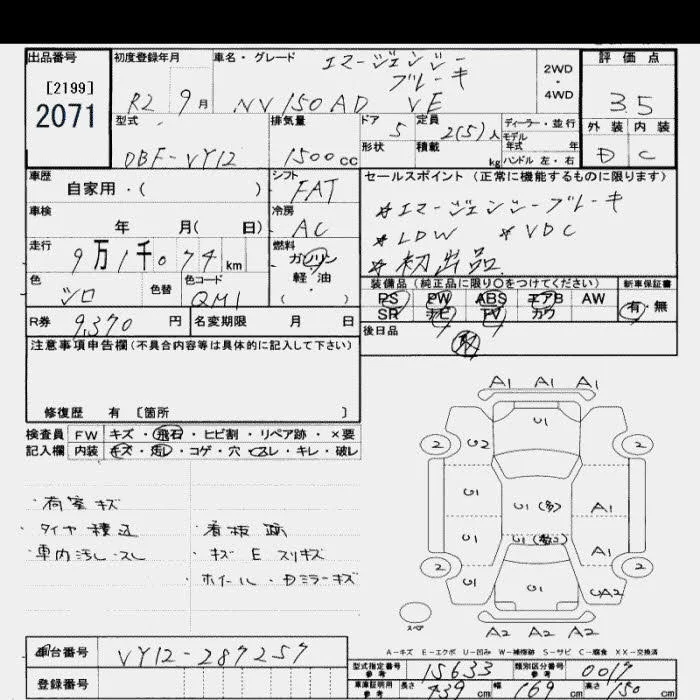 出品番号
[2199]
2071
初度登録年月
R2 9月
車名・グレード
エマージェンシー
ブレーキ
NV150AD VE
2WD
・
4WD
評価点
3.5
外装 内装
D C
型式
DBF-VY12
排気量
1500cc
ドア
5
定員
2(5)人
形状
積載
kg
ディーラー・並行
モデル
年式 年
ハンドル 左・右
車歴
自家用・( )
シフト
FAT
車検
年 月( 日)
冷房
AC
走行
9万1千074km
燃料
ガソリン
軽・油
( )
色
シロ
色替
色コード
QM1
R券 9,370円
名変期限 月 日
セールスポイント(正常に機能するものに限ります)
*エマージェンシーブレーキ
*LDW *VDC
*初出品
装備品(純正品に限り○をつけてください)
新車保証書
PS PW ABS エアB AW
SR ナビ TV カワ
有・無
後日品
注意事項申告欄(不具合内容等は具体的に記入して下さい)
修復歴 有 〔箇所 〕
検査員 FW キズ・飛石・ヒビ割・リペア跡・×要
記入欄 内装 キズ・汚レ・コゲ・穴・スレ・キレ・破レ
・荷室キズ
・タイヤ積込
・車内汚し・スレ
・看板跡
・キズ E スリキズ
・ホイール・Dミラーキズ
A1 A1 A1
U1
2 U2 2
U1 U1(多) A1
U1 U1(数コ) A1
2 2
U1 U1 UA2
スペア
A2 A2 A2
A-キズ E-エクボ U-凹み W-補修跡 S-サビ C-腐食 XX-交換済
車台番号 VY12-287257
登録番号
型式指定番号
参考
15633
類別区分番号
参考
0017
車庫証明用
参考
長さ 439cm 幅 169cm 高さ 150cm